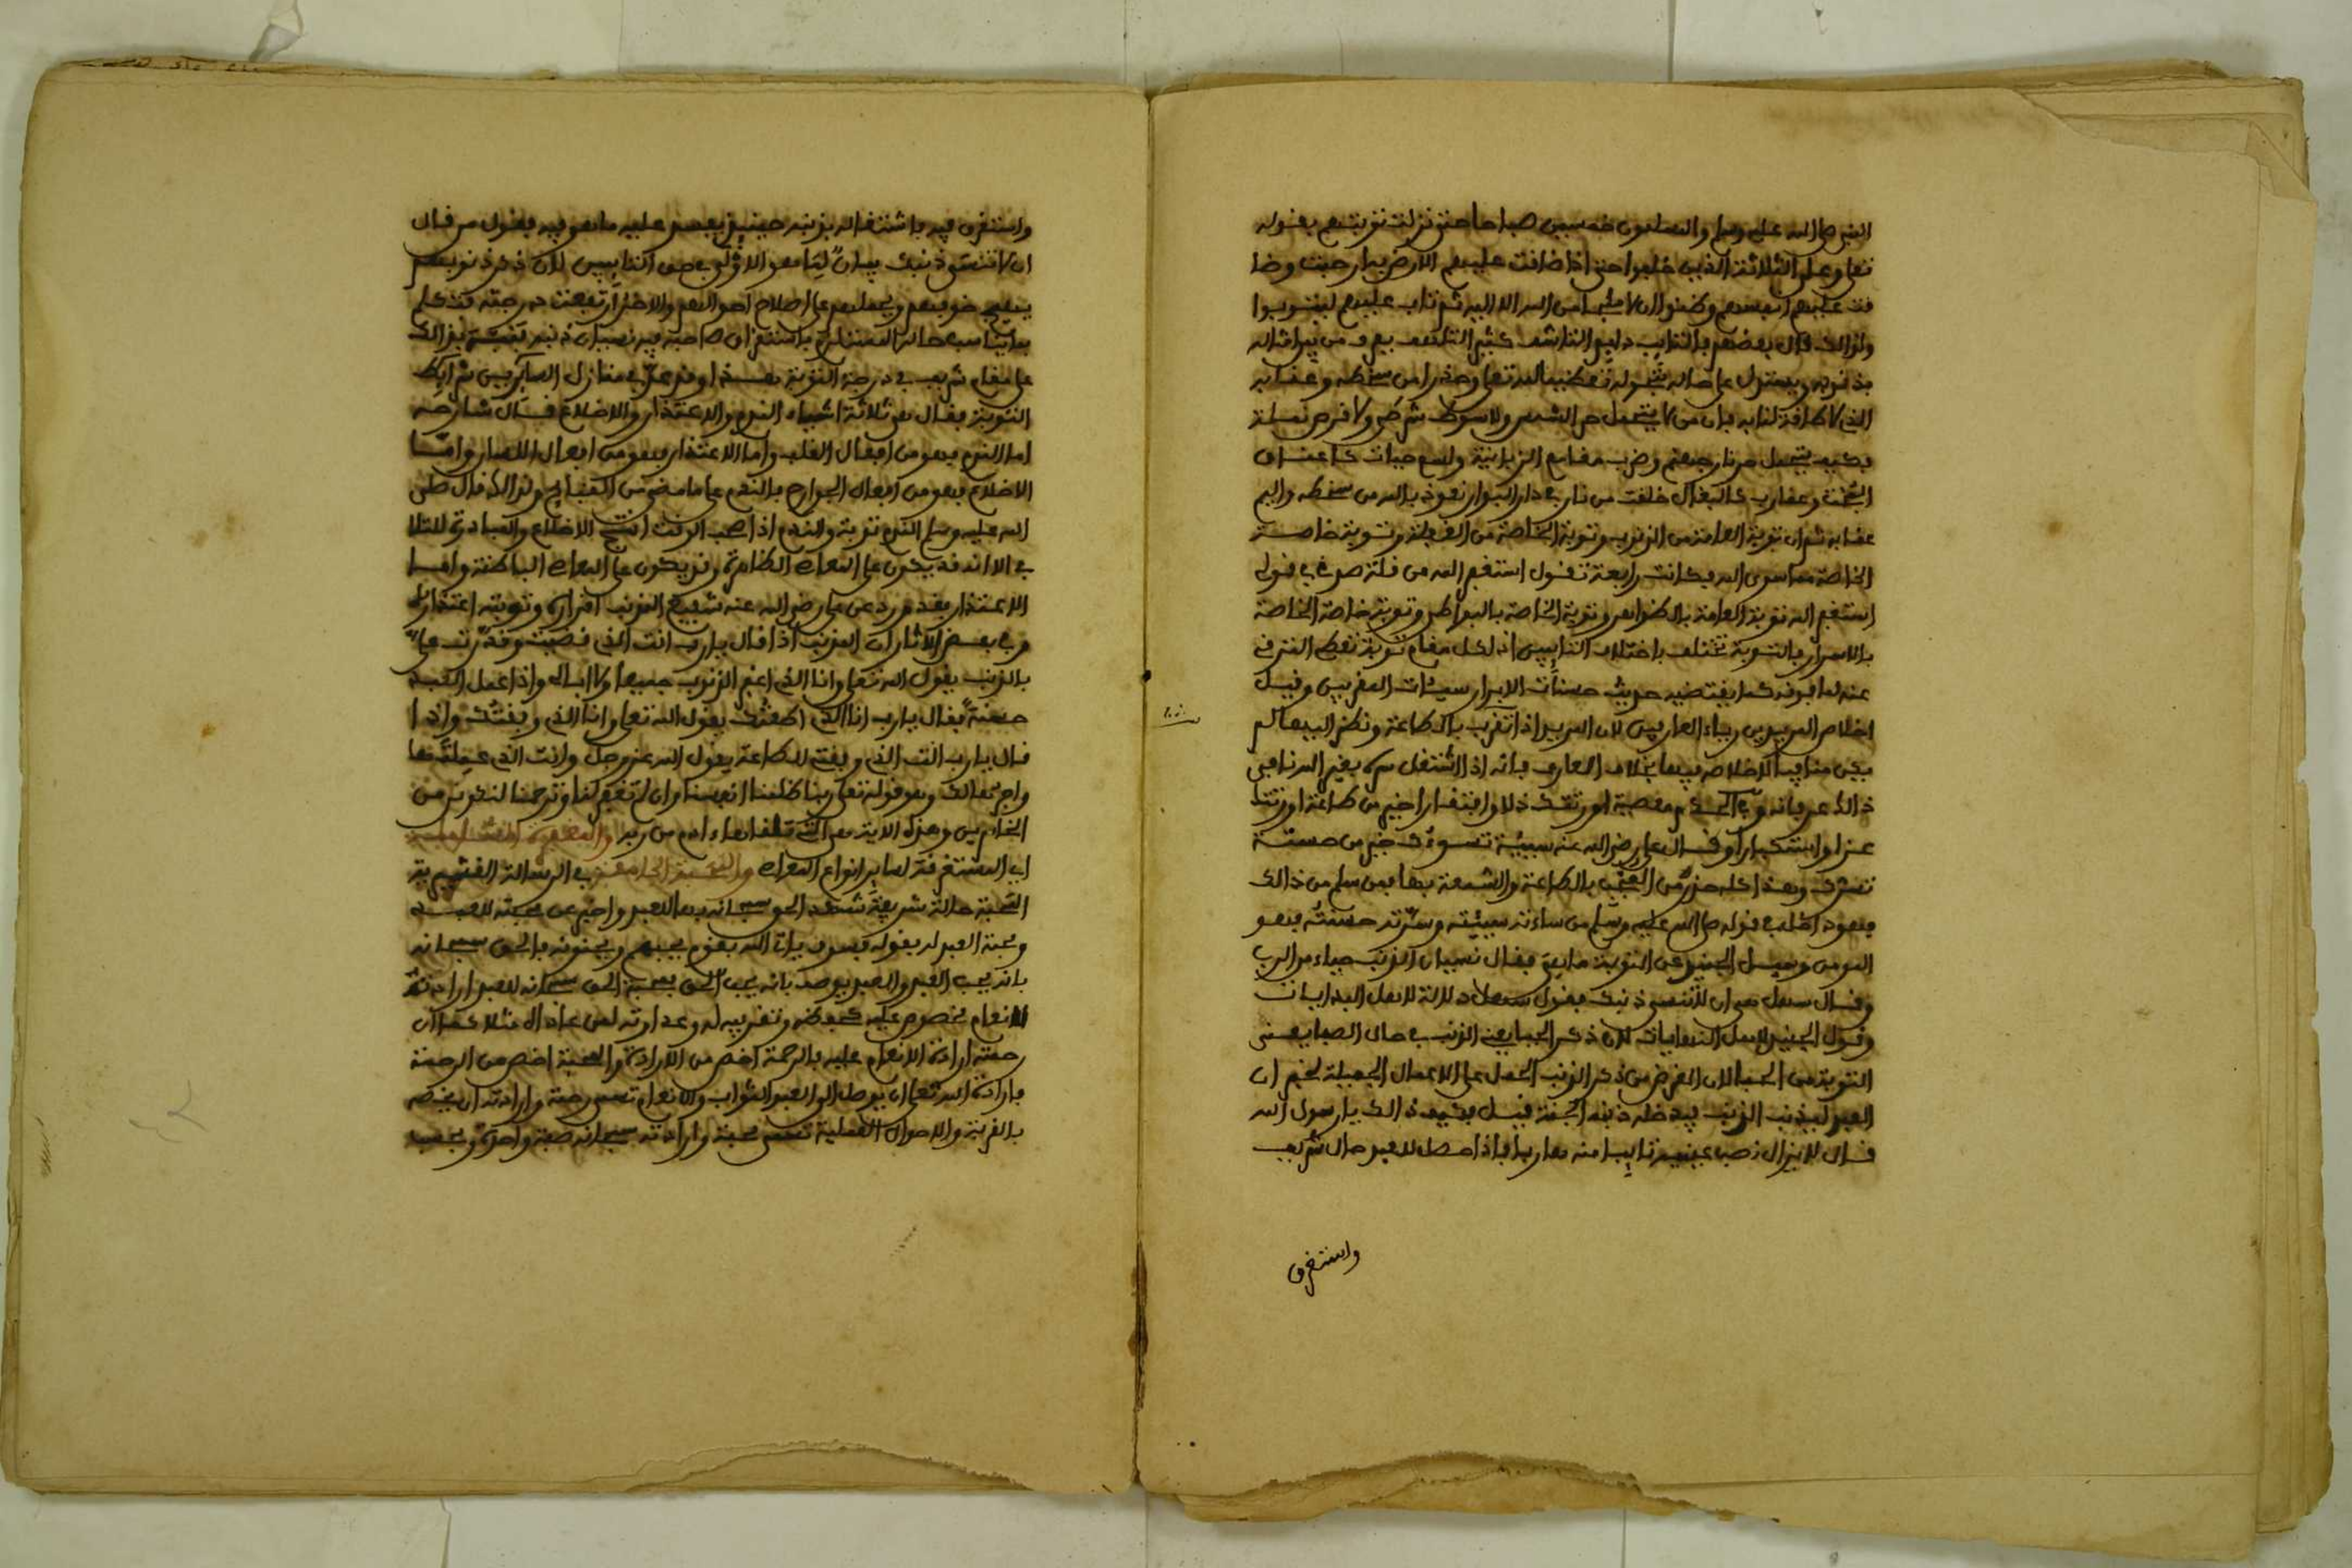 النبي صلى الله عليه وسلم والمسلمون خمسين صباحا حتى نزلت توبتهم بقوله
تعلى وعلى الثلاثة الذين خلفوا حتى اذا ضافت عليهم الارض بما رحبت وضا
فت عليهم انفسهم وظنوا ان لا ملجأ من الله الا اليه ثم تاب عليهم ليتوبوا
ولذالك قال بعضهم التايب دايم التاسف كثير التلهف يعرف من بين امثاله
بذنوبه ويستدل على حاله تعظيما لله تعلى وحذرا من سخطه وعقابه
الذي لا طافة لنا به بان من لا يتحمل حر الشمس ولا سوط شرطي ولا قرص نملة
بكيف يتحمل حر نار جهنم وضرب مقامع الزبانية ولسع حيات كاعناق
البخت وعقارب كالبغال خلقت من نار في دار البوار نعوذ بالله من سخطه واليم
عقابه ثم ان توبة العامة من الذنوب وتوبة الخاصة من الغفلة وتوبة خاصة
الخاصة مما سوى الله وكانت رابعة تقول استغفر الله من قلة صدقي في قولي
استغفر الله توبة العامة بالظواهر وتوبة الخاصة بالبواطن وتوبة خاصة الخاصة
بالاسرار بالتوبة تختلف باختلاف التايبين اذ لكل مقام توبة تعطي الترقي
عنه لما فوقه كما يقتضيه حديث حسنات الابرار سيئات المقربين وقيل
اخلاص المريدين رياء العارفين لان المريد اذا تقرب بالطاعة ونظر اليها لم
يكن منافيا للاخلاص فيها بخلاف العارف فانه اذا اشتغل سره بغير الله نافى
ذالك عرفانه وفي الحكم معصية اورثتك ذلا وافتقارا خير من طاعة اورثت
عزا واستكبارا وقال علي رضي الله عنه سيئة تسوءك خير من حسنة
تسرك وهذا كله حذر من العجب بالطاعة والسمعة بها فمن سلم من ذالك
فهو داخل في قوله صلى الله عليه وسلم من ساءته سيئته وسرته حسنته فهو
المومن وسئل الجنيد عن التوبة ما هي فقال نسيان الذنب حياء من الرب
وقال سهل هي ان لا تنسى ذنبك فقول سهل دلالة لاهل البدايات
وقول الجنيد لاهل النهايات لان ذكر الجفا يعني الذنب في حال الصفا يعني
التوبة من الجفا لان الغرض من ذكر الذنب الحمل على الاعمال الجميلة لخبر ان
العبد ليذنب الذنب فيدخله ذنبه الجنة قيل وكيف ذالك يا رسول الله
قال لا يزال نصب عينيه تايبا منه هاربا فاذا حصل للعبد حال شريف
واستغرق
واستغرق فيه باشتغاله بذنبه حينئذ نقص عليه ما هو فيه بقول من قال
ان لا تنسى ذنبك بيان لما هو الاولى في حق التايبين لان ذكر ذنوبهم
يهيج خوفهم ويحملهم على اصلاح احوالهم والاخر ارتفعت درجته فتكلم
بما يناسب حاله المتنازع باستغراق صاحبه فيه نسيان ذنبه بذالك
على مقام شريف في درجة التوبة هذا وقد في منازل السايرين شرايط
التوبة فقال هي ثلاثة اشياء الندم والاعتذار والاقلاع قال شارحه
اما الندم فهو من افعال القلب واما الاعتذار فهو من افعال اللسان واما
الاقلاع فهو من افعال الجوارح بالندم على ما مضى من القبايح ولذالك قال صلى
الله عليه وسلم الندم توبة والندم اذا صحب الوقت انتج الاقلاع والمبادرة للتلا
في الا انه قد يكون على المعاصي الظاهرة وقد يكون على المعاصي الباطنة واما
الاعتذار فقد ورد عن علي رضي الله عنه شفيع المذنب اقراره وتوبته اعتذاره
وفي بعض الاثار ان المذنب اذا قال يا رب انت الذي قضيت وقدرت علي
بالذنب يقول الله تعلى وانا الذي اغفر الذنوب جميعا ولا ابالي واذا عمل العبد
حسنة فقال يا رب انا الذي اطعتك يقول الله تعلى وانا الذي وفقتك واذا
قال يا رب انت الذي وفقتني للطاعة يقول الله عز وجل وانت الذي عملتها
واجرها لك وهو قوله تعلى ربنا ظلمنا انفسنا وان لم تغفر لنا وترحمنا لنكونن من
الخاسرين وهذه الاية هي التي تلقاها ءادم من ربه والمغفرة الشاملة
اي المستغرقة لساير انواع المعاصي والمحبة الجامعة في الرسالة القشيرية
المحبة حالة شريفة شهد الحق سبحانه بها للعبد واخبر عن محبته للعبد
ومحبة العبد له بقوله فسوف ياتي الله بقوم يحبهم ويحبونه فالحق سبحانه
بانه يحب العبد والعبد يوصف بانه يحب الحق فمحبة الحق سبحانه للعبد ارادته
لانعام مخصوص عليه كحفظه وتقريبه له وعداوته لمن عاداه مثلا كما ان
رحمته ارادة الانعام عليه بالرحمة اخص من الارادة والمحبة اخص من الرحمة
بارادة الله تعلى ان يوصل الى العبد الثواب والانعام تسمى رحمة وارادته ان يخصه
بالقربة والاحوال العلية تسمى محبة وارادته سبحانه صفة واحدة وبحسب